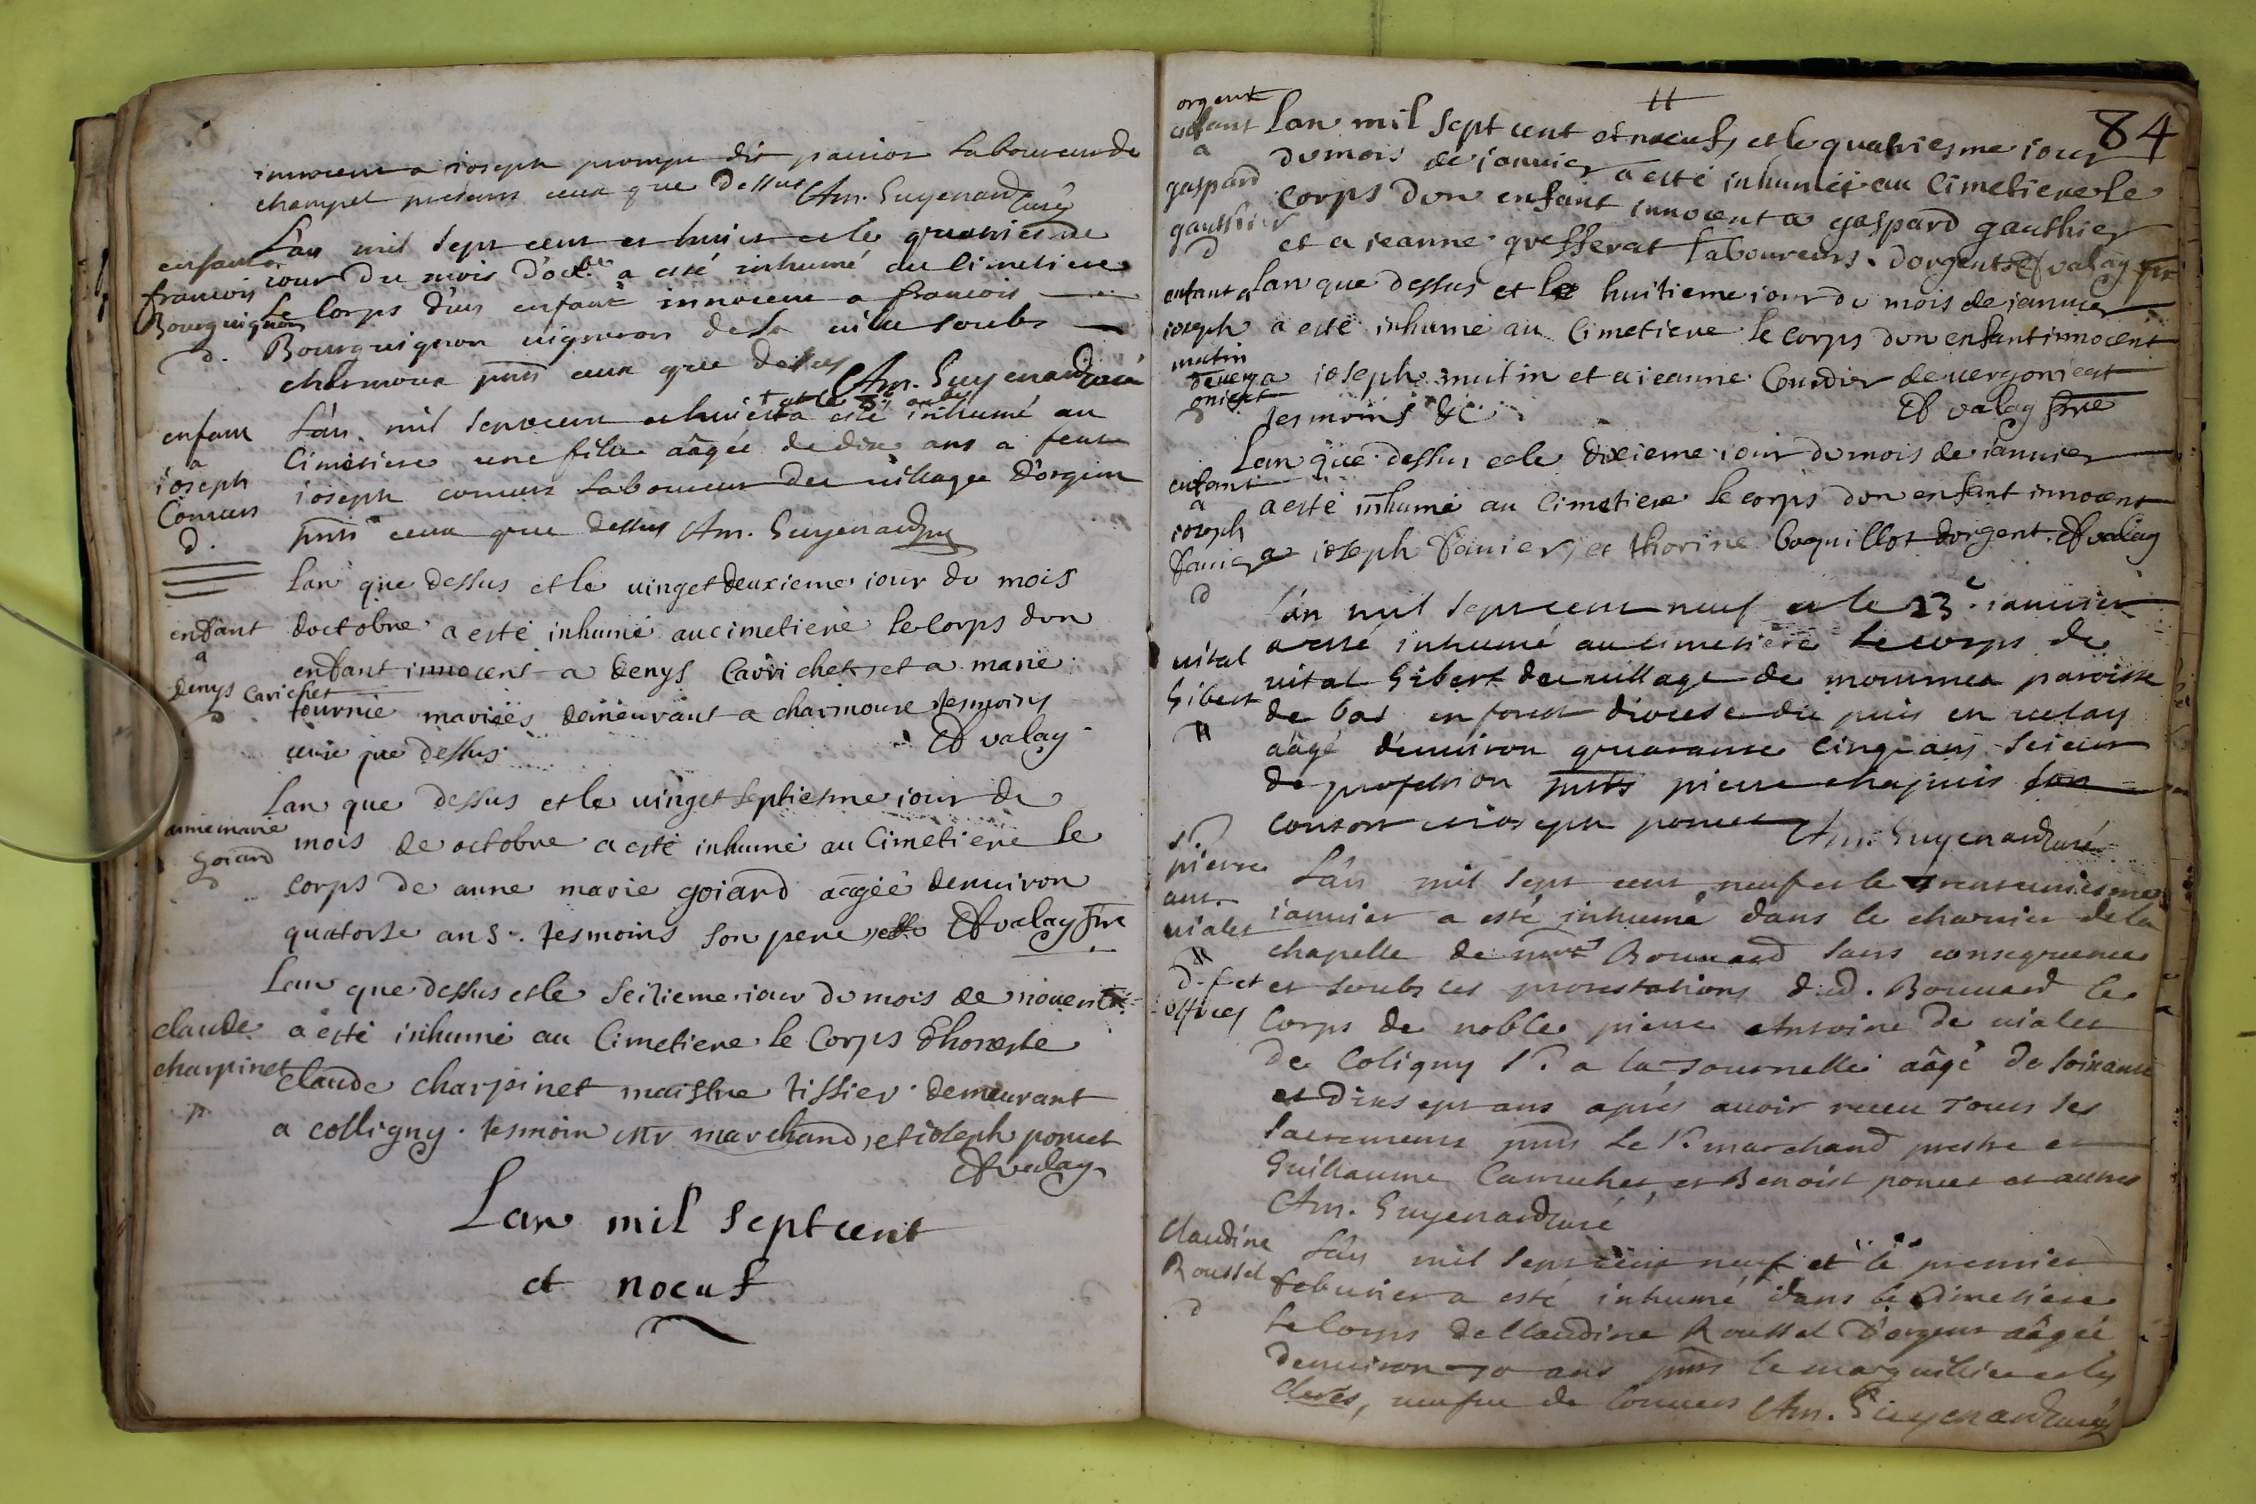 innocent a ioseph promps dit laboureur de
champel presens ceux que dessus Am. Guyenard curé
enfant a
francois
Bourguignon
d.
L'an mil sept cent et huict et le quatriesme
iour du mois d'oct.bre a esté inhumé au Cimetiere
Le Corps d'un enfant innocent a francois
Bourguignon uigneron de la uille soubs
charmoux pnts ceux que dessus
Am. Guyenard curé
enfant
a
ioseph
Conuers
d.
L'an mil sept cent et huict a esté inhumé au
Cimetiere une fille aâgée de dix ans a feut
ioseph conuers Laboureur du uillage d'orgent
pnts ceux que dessus Am. Guyenard
enfant
a
denys Carichet
d
Lan que dessus et le uinget deuxieme iour du mois
doctobre a esté inhumé au cimetiere le Corps dun
enfant innocent a denys Carrichet, et a marie
fournie mariées demeurant a charmoux tesmoins
ceux que dessus. Cl valay
anne marie
goiard
d
Lan que dessus et le uinget septiesme iour de
mois de octobre a esté inhumé au Cimetiere le
Corps de anne marie goiard aagéé denuiron
quatorse ans. tesmoins son pere Cl valay ptre
claude
charpinet
Lan que dessus et le Seizieme iour du mois de nouemb.
a esté inhumé au Cimetiere le Corps d'honeste
Claude charpinet maistre tissier demeurant
a colligny. tesmoin Mr marchand, et ioseph poncet
Cl valay
Lan mil sept cent
et noeuf
84
orgent
enfant
a
gaspard
gauthier
d
Lan mil sept cent et noeuf, et le quatriesme iour
du mois de ianuier a esté inhuméé au Cimetiere le
Corps dun enfant innocent a gaspard gauthier
et a ieanne grefferat laboureurs dorgent Cl valay ptre
enfant a
ioseph
mutin
d
Lan que dessus et le huitieme iour du mois de ianuier
a esté inhumé au Cimetiere le Corps dun enfant innocent
a ioseph mutin et a ieanne Courdier de uergonieat
tesmoins &c Cl valay ptre
enfant
a
ioseph
fanier
d
Lan que dessus et le dixieme iour du mois de ianuier
a esté inhumé au Cimetiere le corps dun enfant innocent
a ioseph fanier, et thorine boquillot dorgent. Cl valay
uital
Gibert
L'an mil sept cent neuf et le 23.e ianuier
a esté inhumé au cimetiere le corps de
uital Gibert du uillage de mommea paroisse
de bas en forest diocese du puis en uelay
aâgé d'enuiron quarante cinq ans scieur
de profession pnts pierre chapuis son
consort et ioseph poncet Am. Guyenard curé
Sr.
pierre
ant.
uialet
d. f et
offices
L'an mil sept cent neuf et le trente uniesme
ianuier a esté inhumé dans le charnier de la
chapelle de mrs Bouuard sans consequence
et soubs les protestations d.d. Bouuard le
Corps de noble pierre Antoine de uialet
de Coligny Sr. a la tournelle aâgé de soixante
et dix sept ans aprés auoir receu tous les
sacremens pnts Le Sr. marchand prestre et
Guillaume Carrichet, et Benoist poncet et autres
Am. Guyenard curé
Claudine
Roussel
d
L'an mil sept cent neuf et le premier
feburier a esté inhumé dans le Cimetiere
Le Corps de Claudine Roussel d'orgent aâgée
denuiron 70 ans pnts le marguillier et les
clercs, ueufue de Conuers Am. Guyenard curé